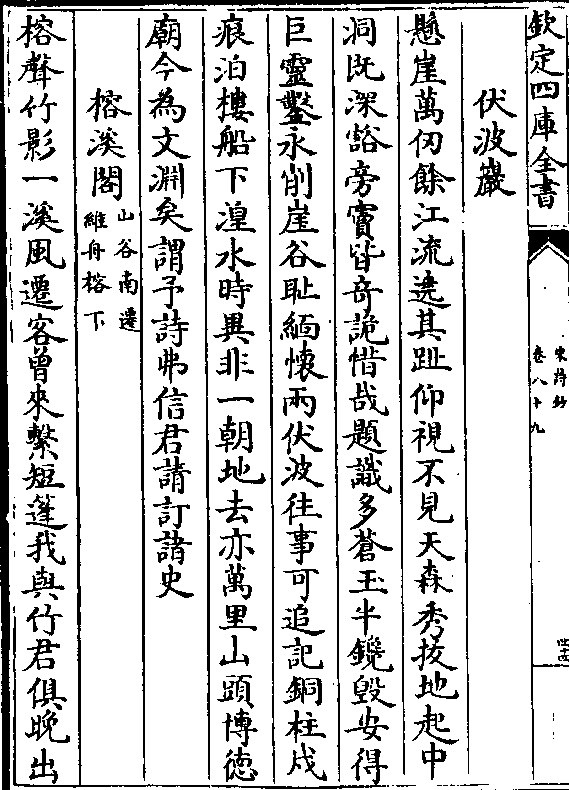 欽定四庫全書
伏波巖
懸崖萬仞餘江流遶其趾仰視不見天森秀拔地起中
洞既深豁旁竇皆奇詭惜哉題識多蒼玉半鑱毀安得
巨靈鑿永削崖谷耻緬懷兩伏波往事可追記銅柱戍
痕泊樓船下湟水時異非一朝地去亦萬里山頭博德
廟今為文淵矣謂予詩弗信君請訂諸史
榕溪閣
山谷南遷
維舟榕下
榕聲竹影一溪風遷客曾來繫短篷我與竹君俱晚出
宋詩鈔
卷八十九